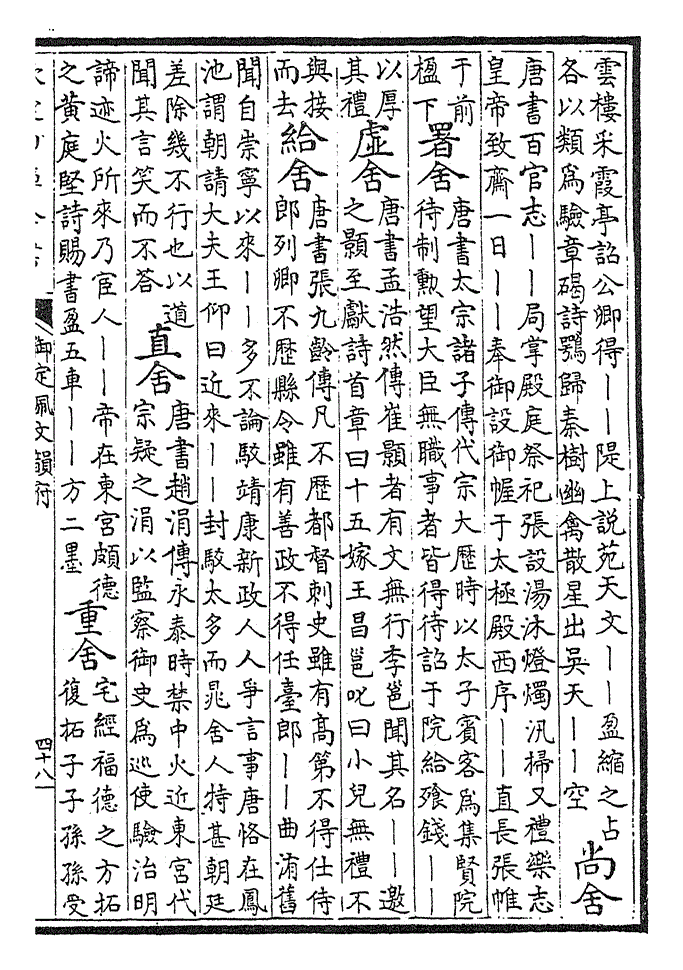 雲樓采霞亭詔公卿得——隄上說苑天文——盈縮之占
各以類爲驗章碣詩鶚歸秦樹幽禽散星出吳天——空
尚舍
唐書百官志——局掌殿庭祭祀張設湯沐燈燭汛掃又禮樂志
皇帝致齋一日——奉御設御幄于太極殿西序——直長張帷
于前
楹下
署舍
唐書太宗諸子傳代宗大歷時以太子賓客爲集賢院
待制勲望大臣無職事者皆得待詔于院給飱錢——
以厚
其禮
虛舍
唐書孟浩然傳崔顥者有文無行李邕聞其名——邀
之顥至獻詩首章曰十五嫁王昌邕叱曰小兒無禮不
與接
而去
給舍
唐書張九齡傳凡不歷都督刺史雖有高第不得仕侍
郎列卿不歷縣令雖有善政不得任臺郎——曲洧舊
聞自崇寧以來——多不論駮靖康新政人人爭言事唐恪在鳳
池謂朝請大夫王仰曰近來——封駮太多而晁舍人特甚朝廷
差除幾不行也以道
聞其言笑而不答
直舍
唐書趙涓傳永泰時禁中火近東宮代
宗疑之涓以監察御史爲巡使驗治明
諦迹火所來乃宦人——帝在東宮頗德
之黃庭堅詩賜書盈五車——方二墨
重舍
宅經福德之方拓
復拓子子孫孫受
御定佩文韻府
四十八